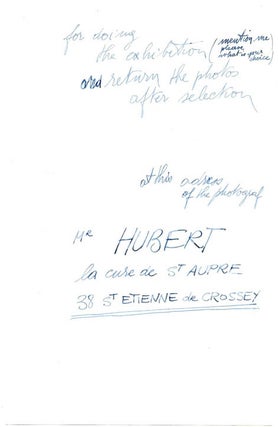 for doing
the exhibition (mention me
please
what is your
choice)
and return the photos
after selection
at this adress
of the photograf
Mr HUBERT
la cure de ST AUPRE
38 ST ETIENNE de CROSSEY